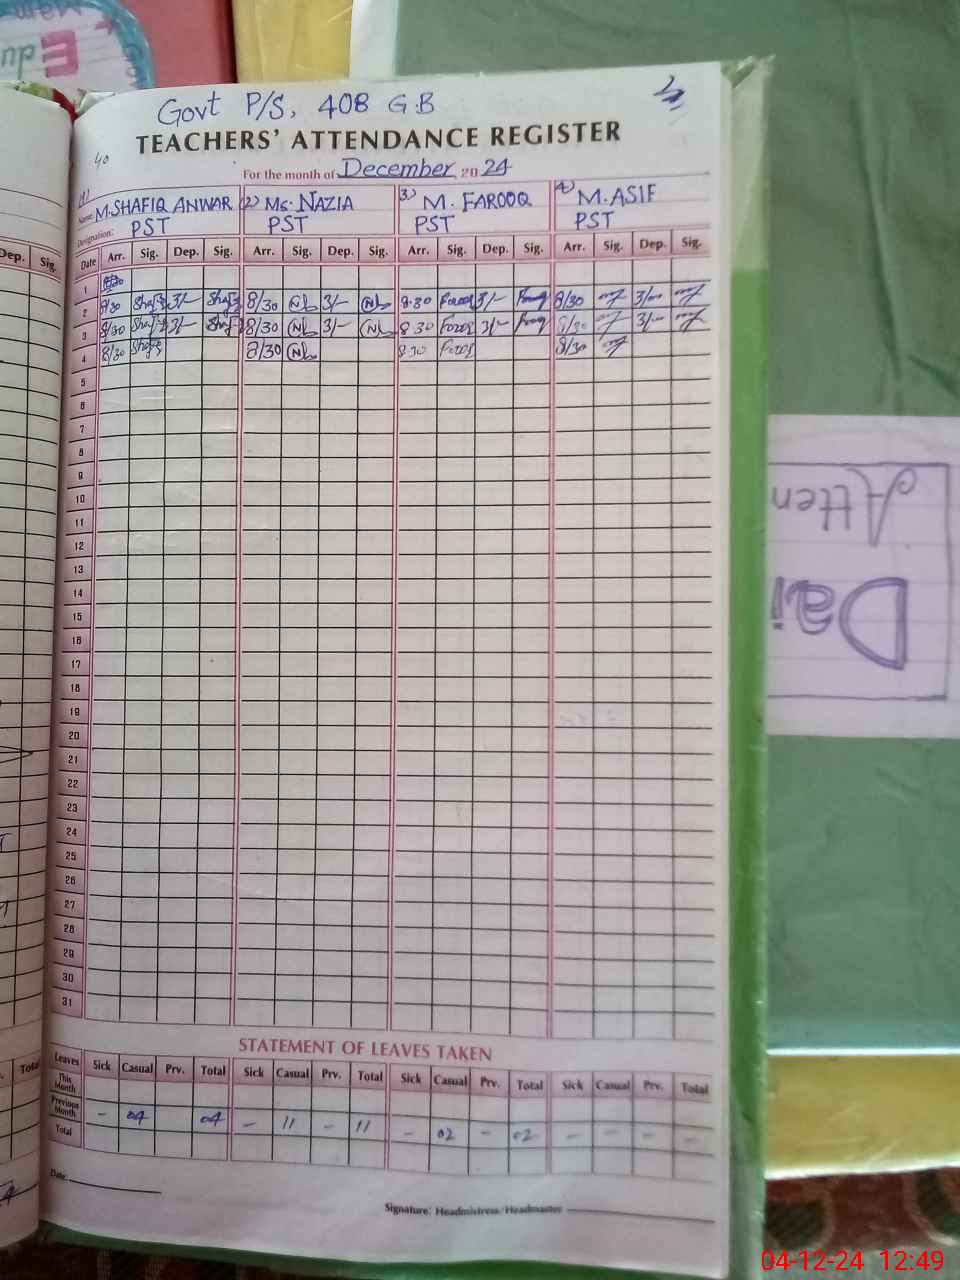 Govt P/S, 408 G.B
TEACHERS' ATTENDANCE REGISTER
40
For the month of December 2024
Name: M.SHAFIQ ANWAR (2) Ms. NAZIA 3) M. FAROOQ 4) M. ASIF
Designation: PST PST PST PST
Dep. Sig. Date Arr. Sig. Dep. Sig. Arr. Sig. Dep. Sig. Arr. Sig. Dep. Sig. Arr. Sig. Dep. Sig.
1
2 8/30 3/- 8/30 3/- 8.30 3/- 8/30 3/-
3 8/30 3/- 8/30 3/- 8 30 3/- 8/30 3/-
4 8/30 8/30 8.30 8/30
5
6
7
8
9
10
11
12
13
14
15
16
17
18
19
20
21
22
23
24
25
26
27
28
29
30
31
STATEMENT OF LEAVES TAKEN
Total Leaves Sick Casual Prv. Total Sick Casual Prv. Total Sick Casual Prv. Total Sick Casual Prv. Total
This Month
Previous Month - 04 04 - 11 - 11 - 02 - 02 - - - -
Total
Date:
Signature: Headmistress/Headmaster
Edu
Atten
Dai
04-12-24 12:49